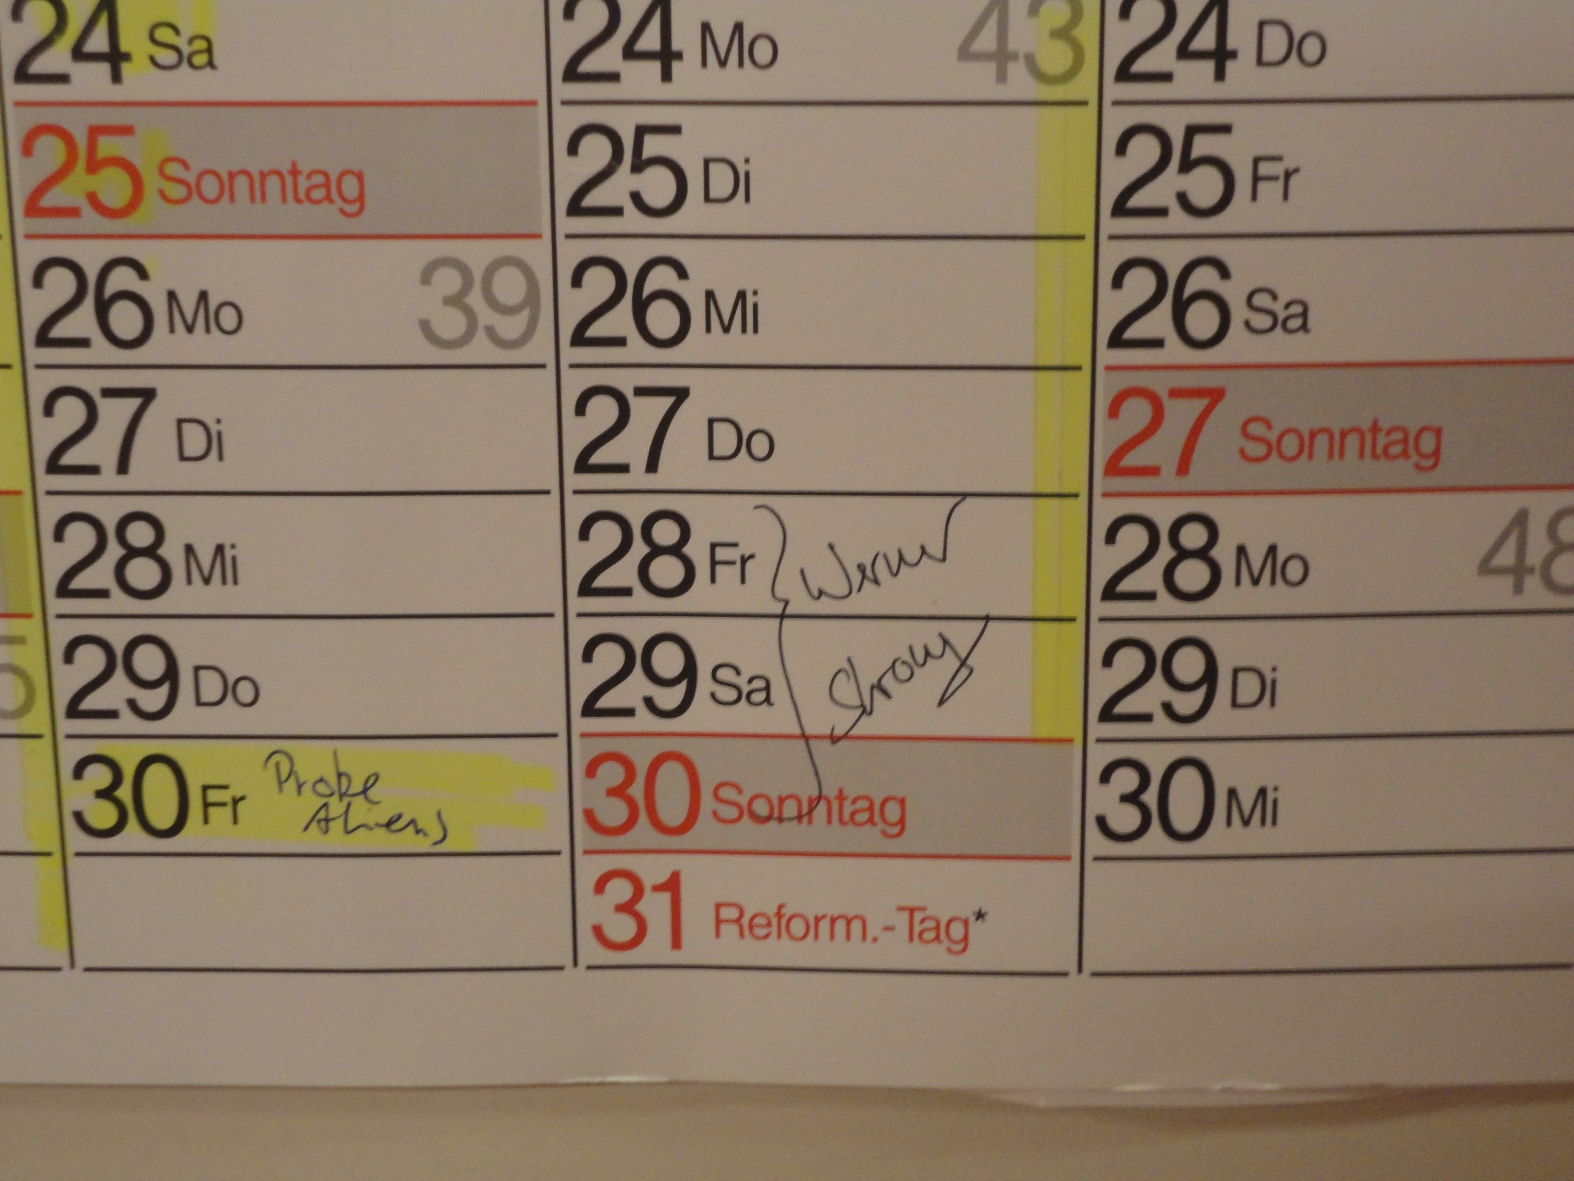 24 Sa
25 Sonntag
26 Mo 39
27 Di
28 Mi
29 Do
30 Fr Probe
Ahrens
24 Mo 43
25 Di
26 Mi
27 Do
28 Fr Werner
29 Sa Strong
30 Sonntag
31 Reform.-Tag*
24 Do
25 Fr
26 Sa
27 Sonntag
28 Mo 48
29 Di
30 Mi
5